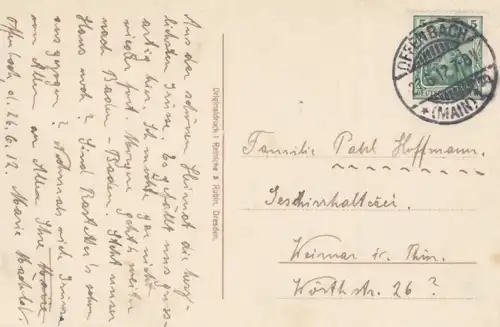 Aus der schönen Heimat die herz-
lichsten Grüße. Es gefällt uns gross-
artig hier. Ich möchte gar nicht
wieder fort. Morgen geht's weiter
nach Baden-Baden. Steht unser
Haus noch? Sind Rastetter's schon
ausgezogen? Nochmals viele Grüsse
von Allen an Alle Ihre
Offenbach d. 26.6.12. Marie
Originaldruck: Reinicke & Rubin, Dresden.
5 5
OFFENBACH
*(MAIN)
Familie Pahl Hoffmann.
Geschirrhalterei.
Weimar i. Thür.
Wörthstr. 26?